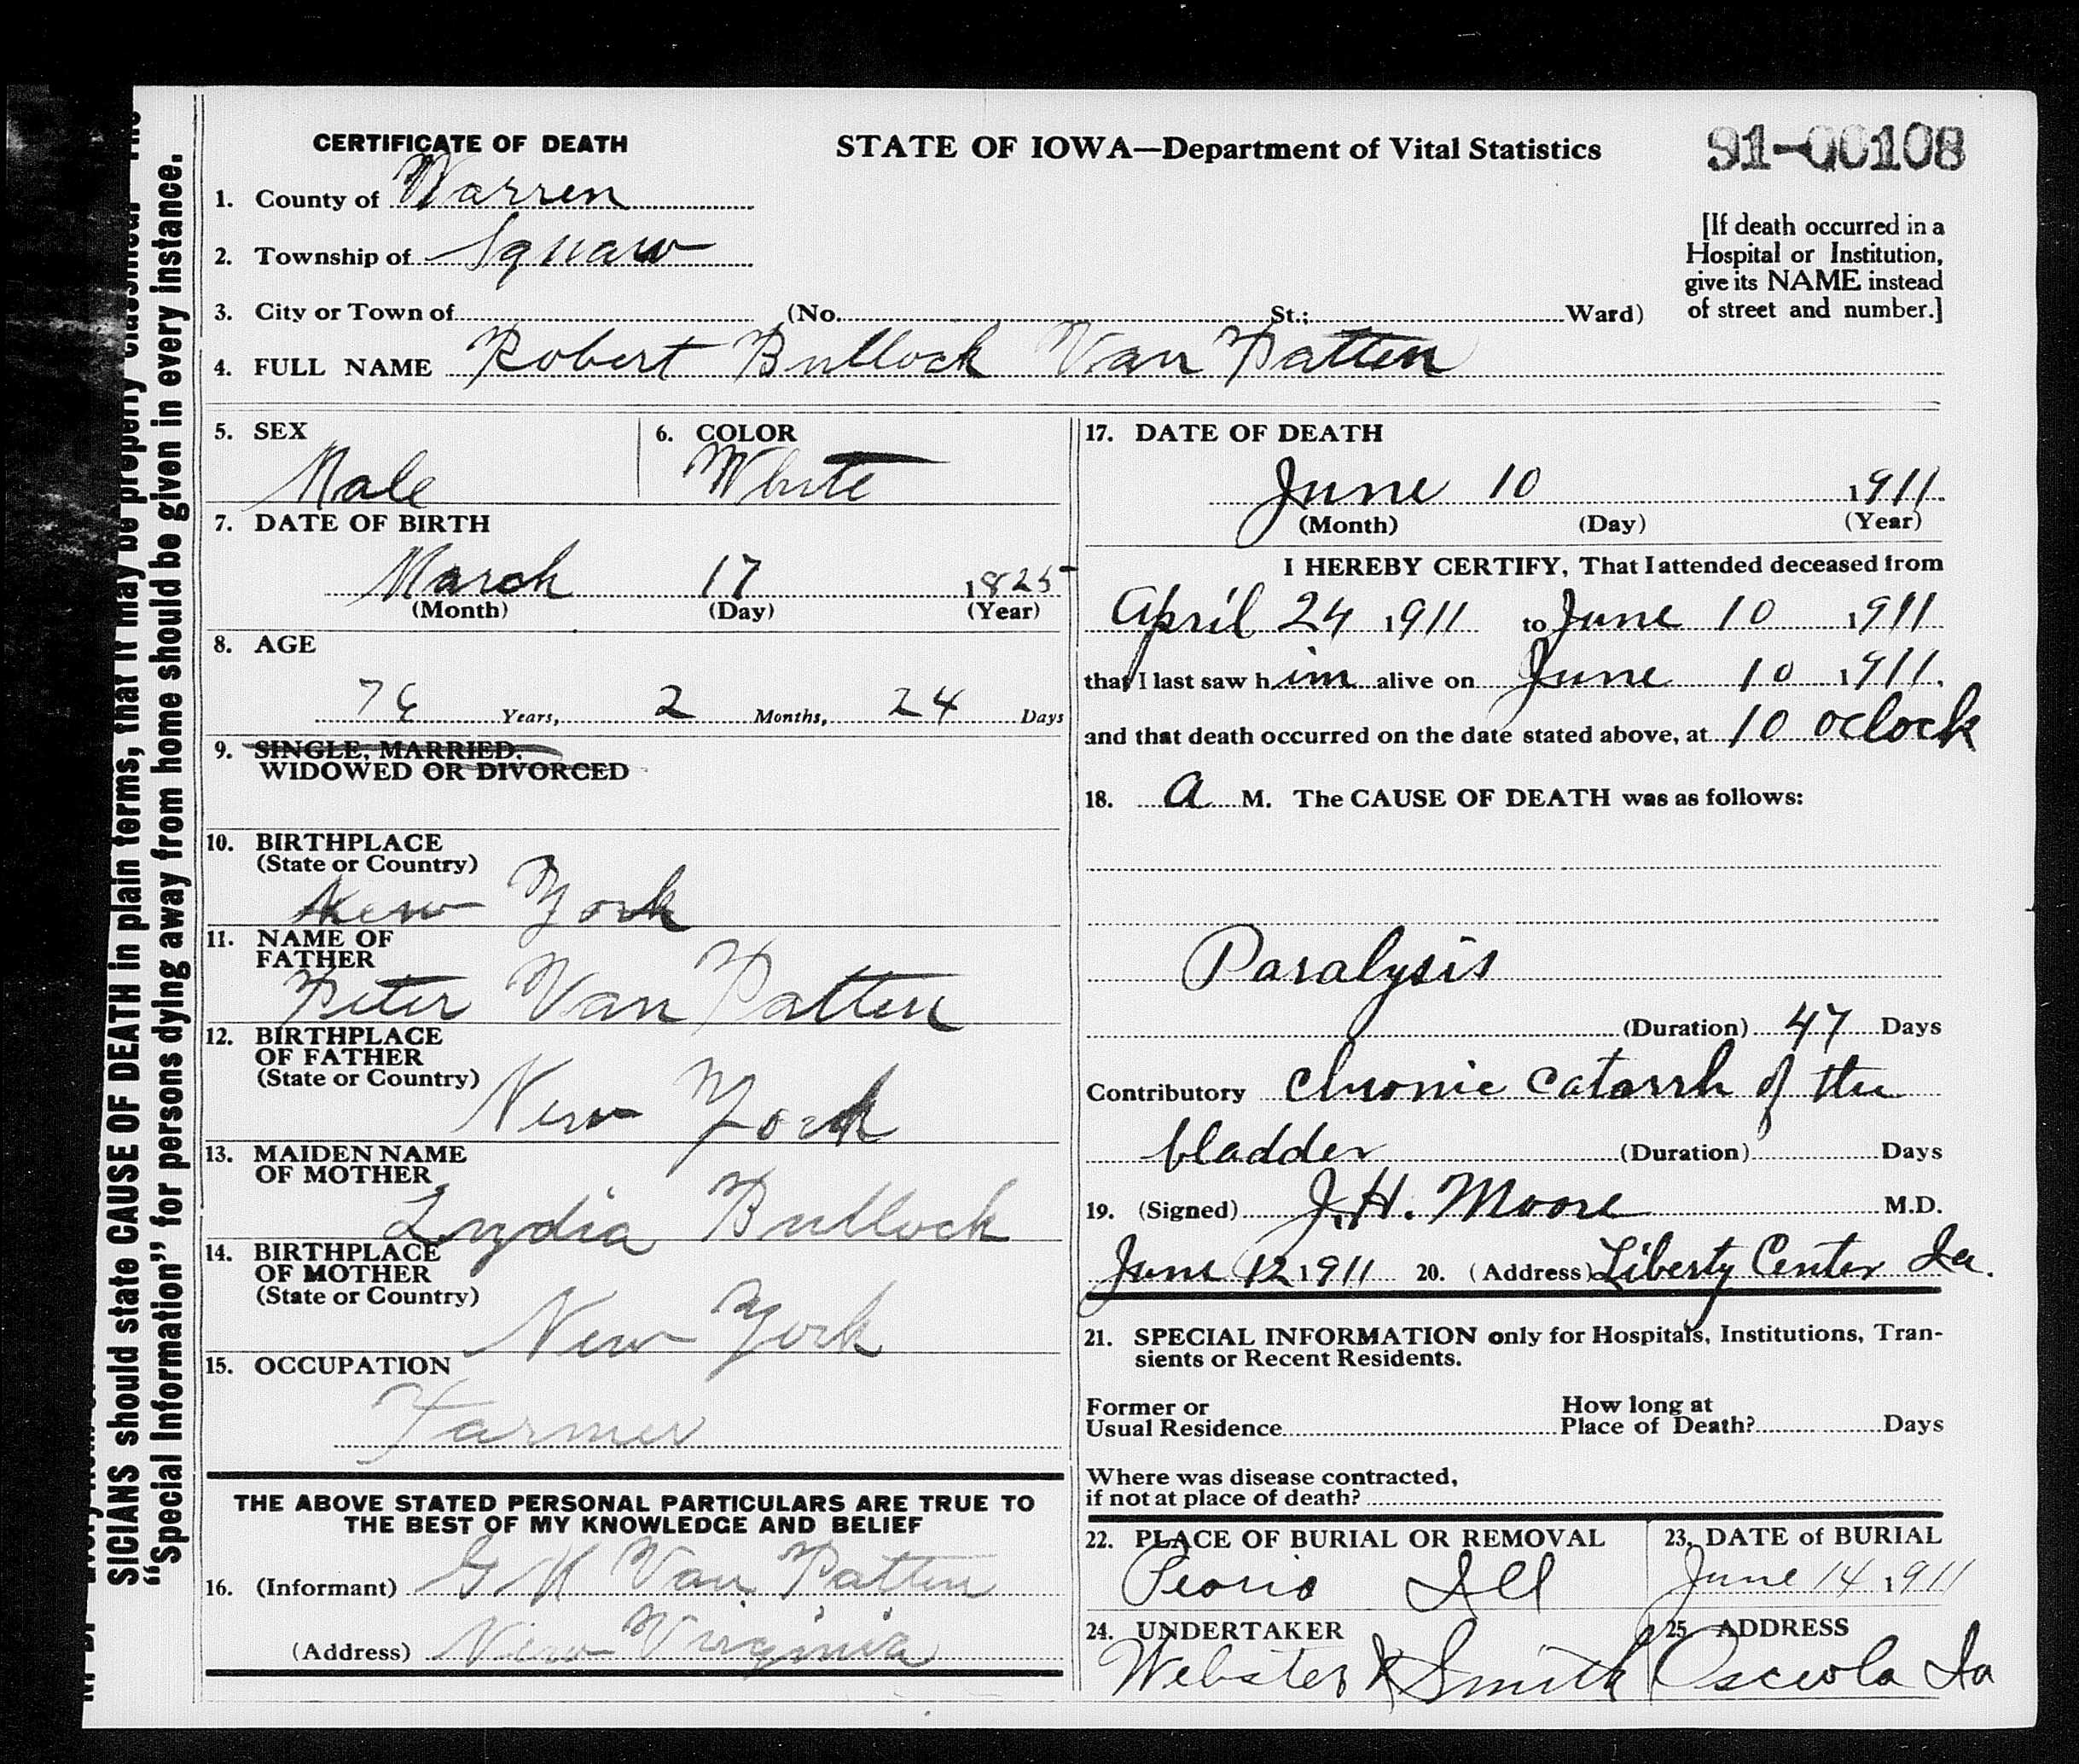 CERTIFICATE OF DEATH
STATE OF IOWA—Department of Vital Statistics
91-00108
1. County of Warren
2. Township of Squaw
3. City or Town of (No. St.; Ward)
[If death occurred in a
Hospital or Institution,
give its NAME instead
of street and number.]
4. FULL NAME Robert Bullock Van Patten
5. SEX
Male
6. COLOR
White
7. DATE OF BIRTH
March 17 1825
(Month) (Day) (Year)
8. AGE
76 Years, 2 Months, 24 Days
9. SINGLE, MARRIED,
WIDOWED OR DIVORCED
10. BIRTHPLACE
(State or Country)
New York
11. NAME OF
FATHER
Peter Van Patten
12. BIRTHPLACE
OF FATHER
(State or Country)
New York
13. MAIDEN NAME
OF MOTHER
Lydia Bullock
14. BIRTHPLACE
OF MOTHER
(State or Country)
New York
15. OCCUPATION
Farmer
THE ABOVE STATED PERSONAL PARTICULARS ARE TRUE TO
THE BEST OF MY KNOWLEDGE AND BELIEF
16. (Informant) G H Van Patten
(Address) New Virginia
17. DATE OF DEATH
June 10 1911
(Month) (Day) (Year)
I HEREBY CERTIFY, That I attended deceased from
April 24 1911 to June 10 1911
that I last saw him alive on June 10 1911,
and that death occurred on the date stated above, at 10 oclock
18. A M. The CAUSE OF DEATH was as follows:
Paralysis
(Duration) 47 Days
Contributory Chronic catarrh of the
bladder (Duration) Days
19. (Signed) J. H. Moore M.D.
June 12 1911 20. (Address) Liberty Center Ia.
21. SPECIAL INFORMATION only for Hospitals, Institutions, Tran-
sients or Recent Residents.
Former or
Usual Residence
How long at
Place of Death? Days
Where was disease contracted,
if not at place of death?
22. PLACE OF BURIAL OR REMOVAL
Peoria Ill
23. DATE of BURIAL
June 14 1911
24. UNDERTAKER
Webster & Smith
25 ADDRESS
Osceola Ia
SICIANS should state CAUSE OF DEATH in plain terms, that it may be properly classified. The
"Special Information" for persons dying away from home should be given in every instance.